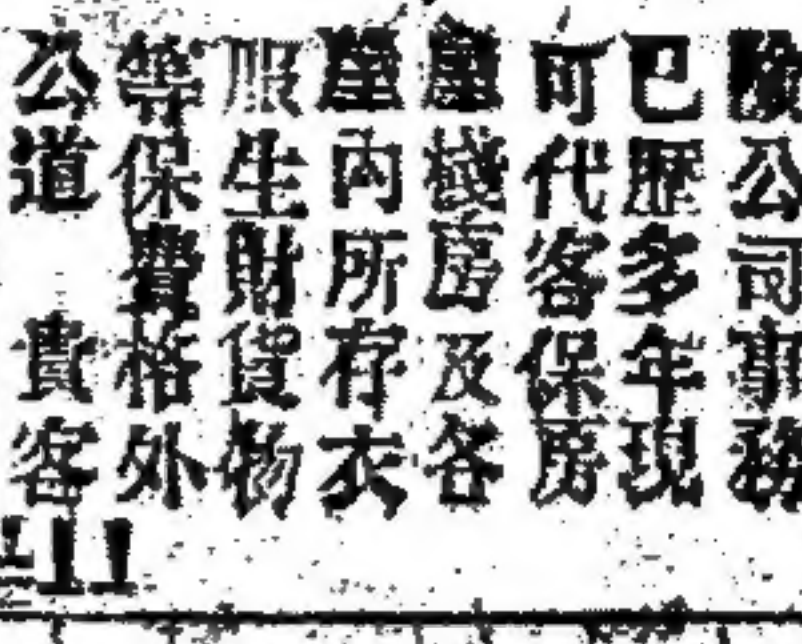 險公司事務
巳歷多年現
可代客保房
屋棧房及各
屋內所存衣
服生財貨物
等保費格外
公道　貴客